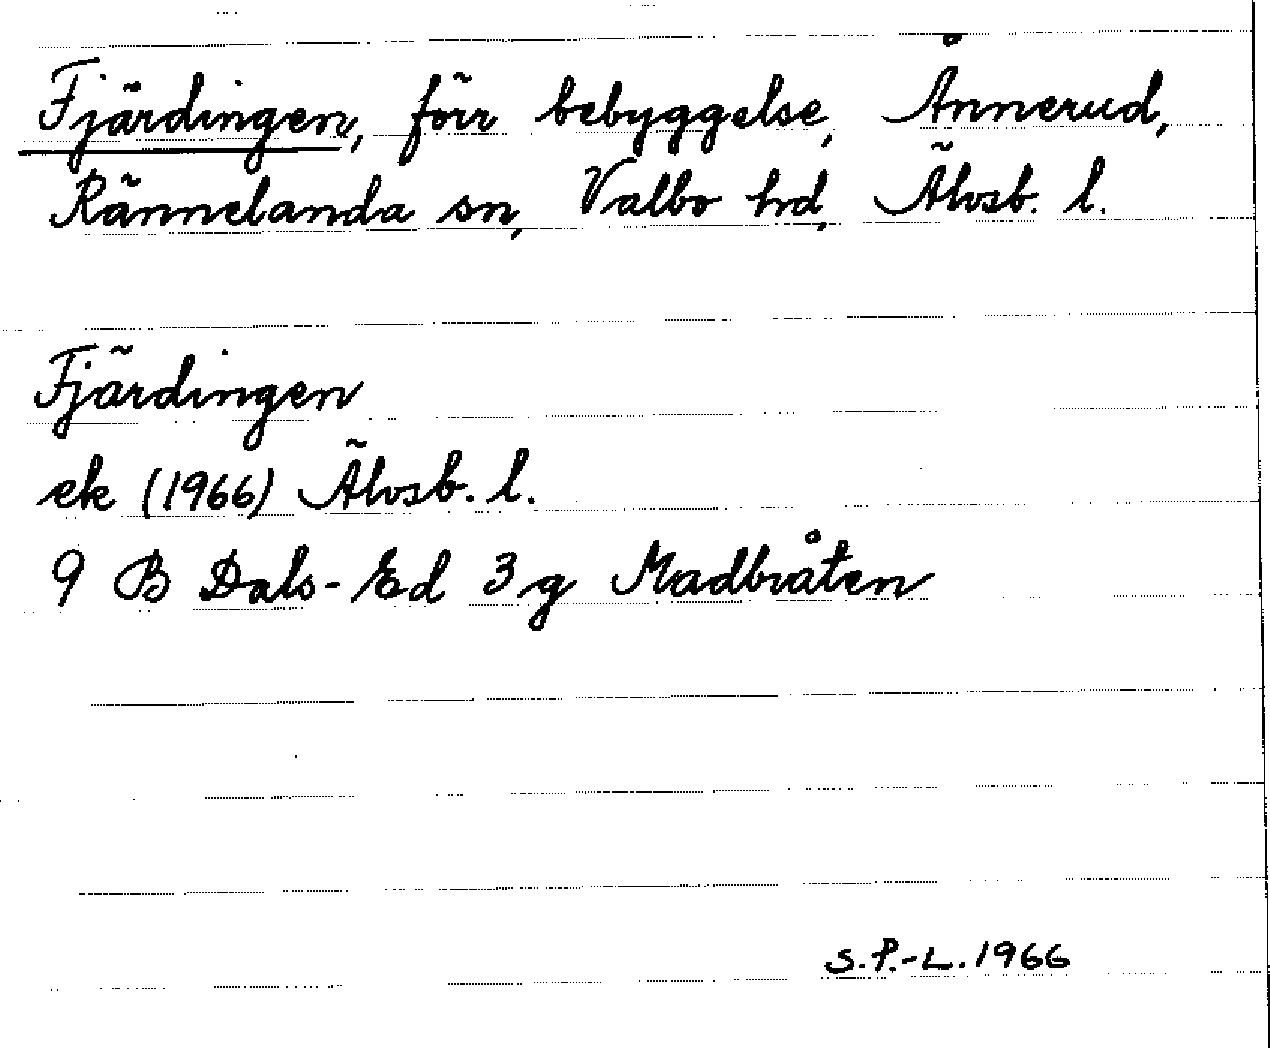 Fjärdingen, förr bebyggelse, Ånnerud,
Rännelanda sn, Valbo hd, Älvsb. l.
Fjärdingen
ek (1966) Älvsb. l.
9 B Dals-Ed 3g Madbråten
S.P.-L. 1966